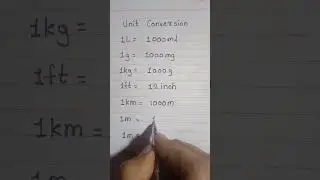 Unit Conversion
1L = 1000ml
1g = 1000mg
1kg = 1000g
1ft = 12 inch
1km = 1000m
1m =
1m =